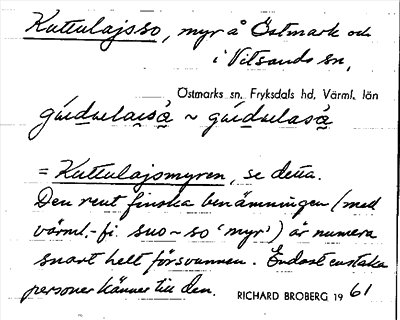 Kuttulajsso, myr å Östmark och
i Vitsands sn,
Östmarks sn, Fryksdals hd, Värml. län
= Kuttulajsmyren, se detta.
Den rent finska benämningen (med
värml.-fi suo ~ so 'myr') är numera
snart helt försvunnen. Endast enstaka
personer känner till den.
RICHARD BROBERG 1961